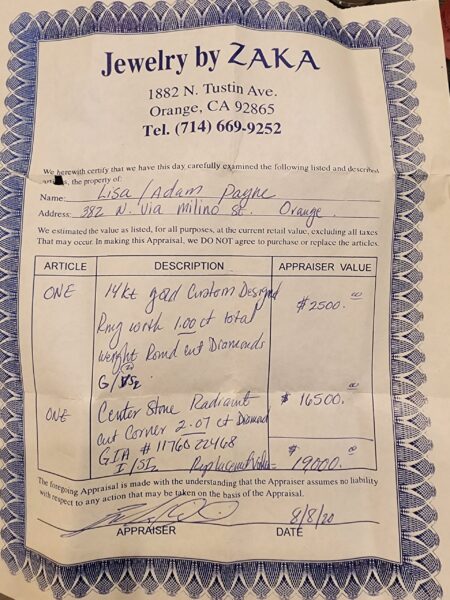 Jewelry by ZAKA
1882 N. Tustin Ave.
Orange, CA 92865
Tel. (714) 669-9252
We herewith certify that we have this day carefully examined the following listed and described
articles, the property of:
Name: Lisa / Adam Payne
Address: 382 N. Via Milino St. Orange.
We estimated the value as listed, for all purposes, at the current retail value, excluding all taxes
That may occur. In making this Appraisal, we DO NOT agree to purchase or replace the articles.
ARTICLE DESCRIPTION APPRAISER VALUE
ONE 14kt gold Custom Designed $2500.00
Ring with 1.00 ct total
weight Round cut Diamonds
G/VS2
ONE Center Stone Radiant $16500.00
cut Corner 2.07 ct Diamond
GIA # 1176022468
I/SI2 Replacement Value= $19000.00
The foregoing Appraisal is made with the understanding that the Appraiser assumes no liability
with respect to any action that may be taken on the basis of the Appraisal.
8/8/20
APPRAISER DATE